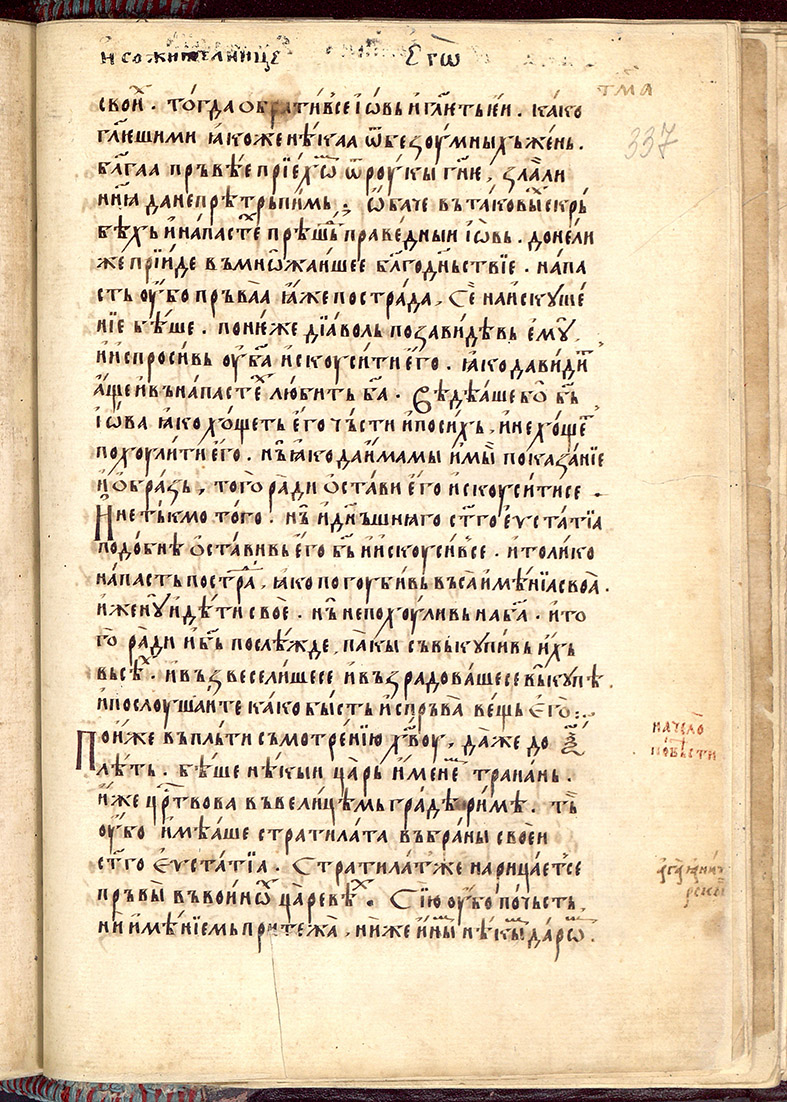 и сожителнице его̑
тм҃а
337
свои̑. тогда обративсе іѡвь и гл҃еть еи. како
гл҃ешими ꙗкоже нѣкаа ѿ безоумныхъ жень.
бл҃гаа прьвѣе прїехѡ̑ ѿ роукы гн҃ѥ, злаѧ ли
нн҃ꙗ да не прѣтрьпимь, ѡбаче въ таковых скрь
бѣхь и напастех прѣшⷣь праведныи іѡвь. донели
же прїиде въ мнѡжаишее бл҃годньствїе. напа
сть оубо прьваа ꙗже пострада, се на искуше
нїе бѣше. понѥже дїаволь позавидѣвь ємꙋ,
и испросивь оу б҃а искоусити его. ꙗко да видит
аще и въ напастех любить б҃а. вѣдѣаше бо б҃ь
іѡва ꙗко хощеть его чьсти и посихь, и не хоще
похоулити его. нь ꙗко да имамы и мы показанїе
и образь, того ради остави его искоуситисе.
И не тькмо того. нь и дн҃ьшнꙗго ст҃го еустатїа
подобнѣ оставивь его б҃ь и искоусивсе. и толико
напасть постра, ꙗко погоубивь въса имѣнїа своа.
и женꙋ и дѣти своѐ. нь не похоуливь на б҃а. и то
го ради и б҃ь послѣжде, пакы съвькупивь ихь
вьсѣх. и възвеселишесе и възрадовашесе вькупѣ.
и послоушаите како бысть и спрьва вещь его:
Понѥже въ пльти съмотренїю х҃воу, даже до
лѣть. бѣше нѣкыи царь именем траиань.
иже цр҃твова въ велицѣмь градѣ римѣ. ть
оубо имѣаше стратилата въбраны своеи
ст҃го еустатїа. Стратилат же нарицаетсе
прьвы въ воинѡх царевѣх. Сїю оубо почьсть,
ни имѣнїемь притежа, ниже иным нѣкым дарѡм.
начело
повѣсти